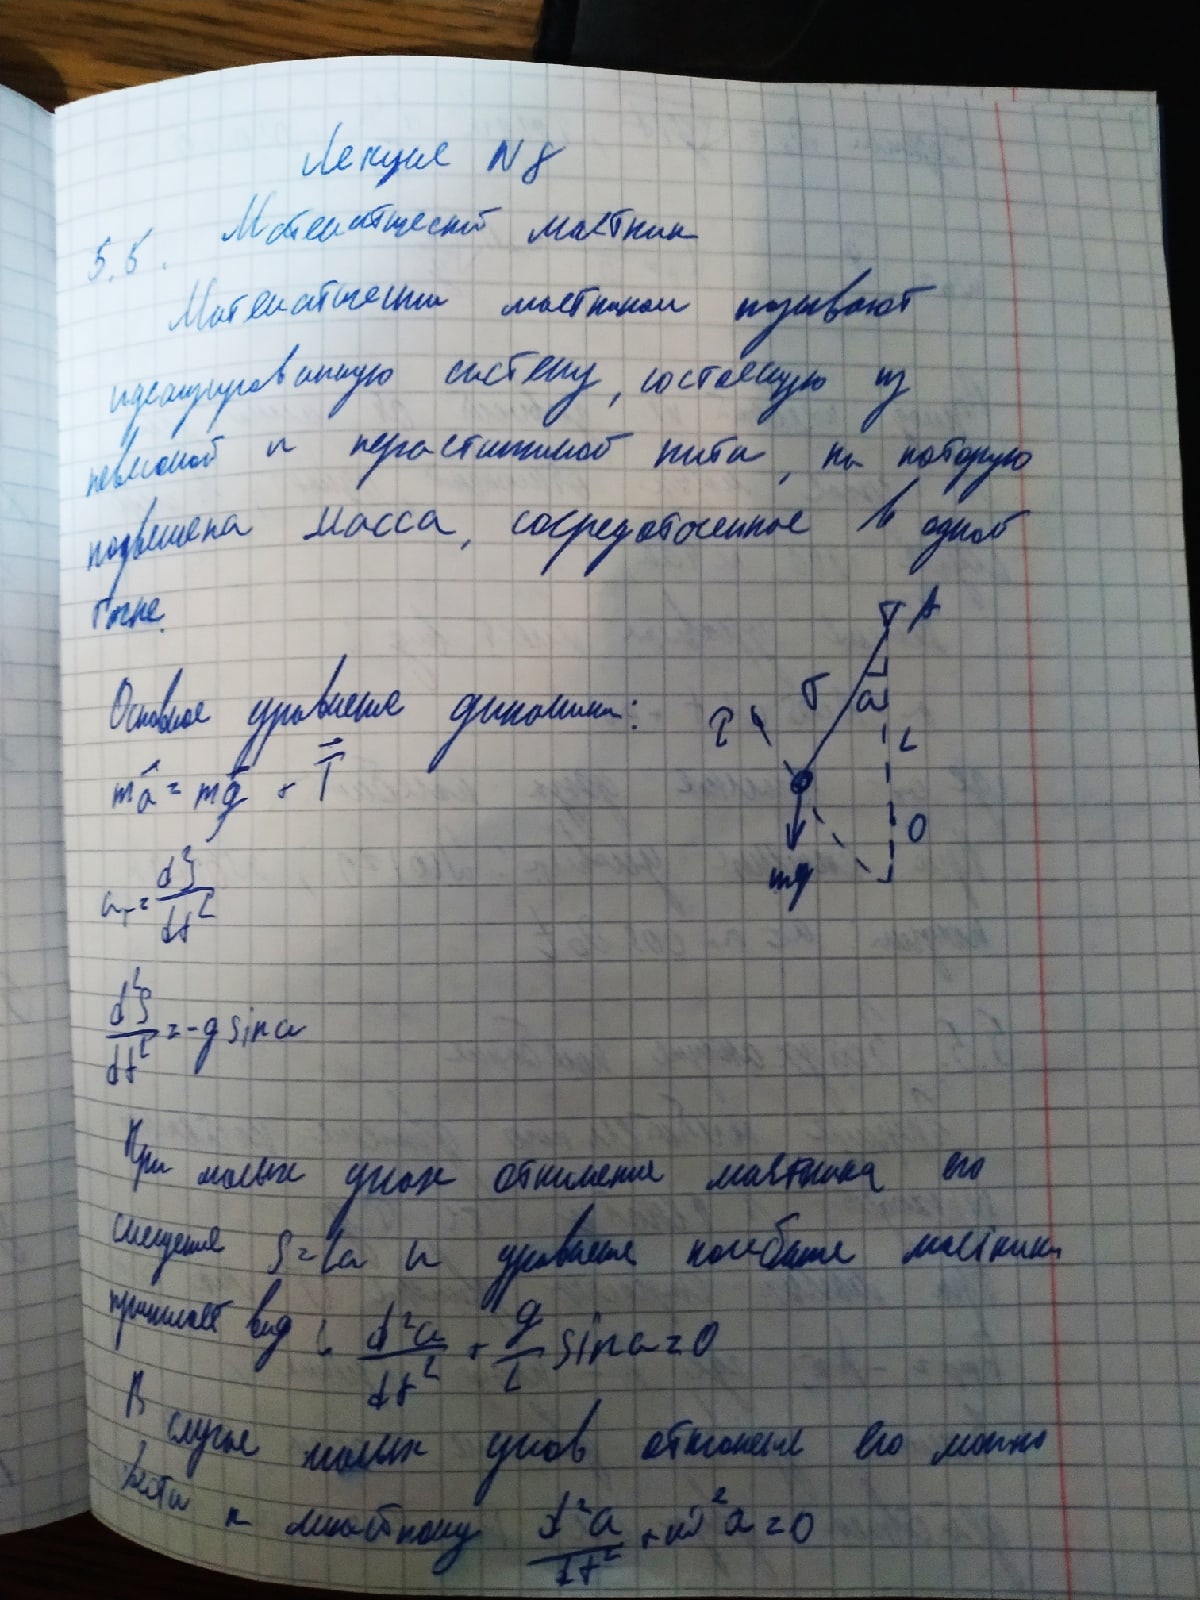 Лекция N 8
5.5. Математический маятник
Математическим маятником называют
идеализированную систему, состоящую из
невесомой и нерастяжимой нити, на которую
подвешена масса, сосредоточенная в одной
точке.
A
T
a
τ
L
O
mg
Основное уравнение динамики:
ma⃗ = mg⃗ + T⃗
aτ = d²S/dt²
d²S/dt² = -g sin a
При малых углах отклонения маятника его
смещение S = La и уравнение колебание маятника
принимает вид: d²a/dt² + g/L sin a = 0
В случае малых углов отклонения его можно
к d²a/dt² + ω²a = 0